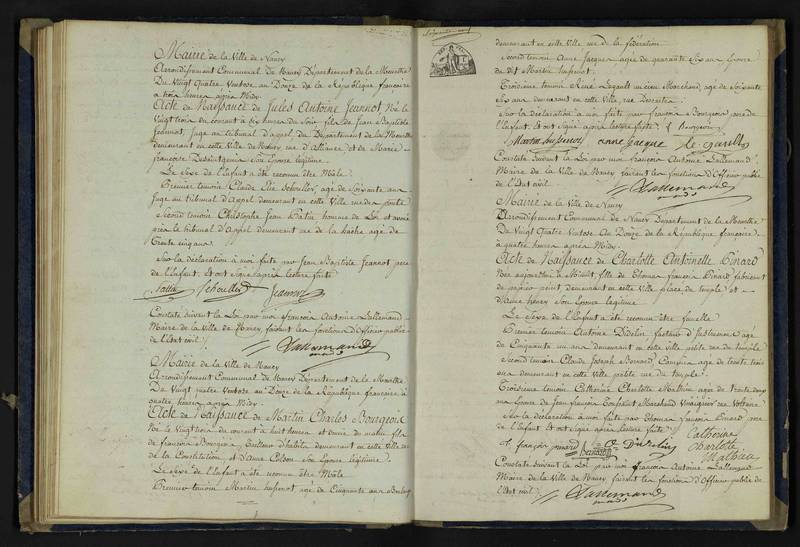 Mairie de la Ville de Nancy
Arrondissement Communal de Nancy Département de la Meurthe
Du Vingt quatre Ventose, an Douze de la République française
à trois heures après Midy.
Acte de Naissance de Jules Antoine Jeannot Né le
Vingt trois du courant à six heures du Soir, fils de Jean Baptiste
Jeannot, Juge au tribunal d'appel du Département de la Meurthe
demeurant en cette Ville de Nancy, rue d'Alliance et de Marie
françoise Son Epouse légitime.
Le Sexe de l'Enfant a été reconnu être Mâle.
Premier temoin Claude Elie Schouller, agé de Soixante ans
Juge au tribunal d'Appel demeurant en cette Ville
Second temoin Christophe Jean Hatin homme de Loi et avoué
près le tribunal d'Appel demeurant rue de la hache agé de
Trente cinq ans.
Sur la déclaration à moi faite par Jean Baptiste Jeannot père
de l'Enfant. Et ont Signé après lecture faite
Schouller Jeannot
Constaté suivant la Loi par moi françois Antoine Lallemand
Maire de la Ville de Nancy faisant les fonctions d'Officier public
de l'Etat civil.
Lallemand
Maire
Mairie de la Ville de Nancy
Arrondissement Communal de Nancy Département de la Meurthe
Du Vingt quatre Ventose, an Douze de la République française à
quatre heures après Midy.
Acte de Naissance de Martin Charles Bourgeois
Né le Vingt trois du courant à huit heures et demie du matin fils
de françois Bourgeois, d'habits demeurant en cette Ville rue
de la Constitution, et d'Anne Colson Son Epouse légitime.
Le Sexe de l'Enfant a été reconnu être Mâle.
Premier temoin Martin husenot, agé de Cinquante ans
demeurant en cette Ville rue de la fédération
Second temoin Anne Jacque agée de quarante Six ans Epouse
de dit Martin husenot.
Troisieme temoin René Legault ancien Marchand, agé de Soixante
Six ans demeurant en cette Ville, rue
Sur la déclaration à moi faite par françois Bourgeois père de
l'Enfant. et ont Signé après lecture faite f Bourgeois
Martin husenot anne jacque le gault
Constaté suivant la Loi par moi françois Antoine Lallemand
Maire de la Ville de Nancy faisant les fonctions d'Officier public
de l'Etat civil
Lallemand
Maire
Mairie de la Ville de Nancy
Arrondissement Communal de Nancy Département de la Meurthe
Du Vingt Quatre Ventose An Douze de la République française.
à quatre heures après Midy.
Acte de Naissance de Charlotte Antoinette Pinard
Née aujourd'hui à Minuit, fille de Thomas françois Pinard fabricant
de papier peint, demeurant en cette Ville place du temple et
d'Anne henry Son Epouse légitime.
Le Sexe de l'Enfant a été reconnu être femelle
Premier temoin Antoine Didelin, facteur d'instrument agé
de Cinquante un ans demeurant en cette Ville petite rue du temple
Second temoin Claude Joseph Bernard, Commis agé de trente trois
ans demeurant en cette Ville petite rue du temple.
Troisieme temoin Catherine Charlotte Mathieu agée de trente
ans Epouse de Jean françois Marchand Vinaigrier rue Voltaire
Sur la déclaration à moi faite par Thomas françois Pinard père
de l'Enfant. Et ont Signé après lecture faite
françois pinard Bernard Didelin
Catherine
Charlotte
Mathieu
Constaté suivant la Loi par moi françois Antoine Lallemand
Maire de la Ville de Nancy faisant les fonctions d'Officier public de
l'Etat civil
Lallemand
Maire